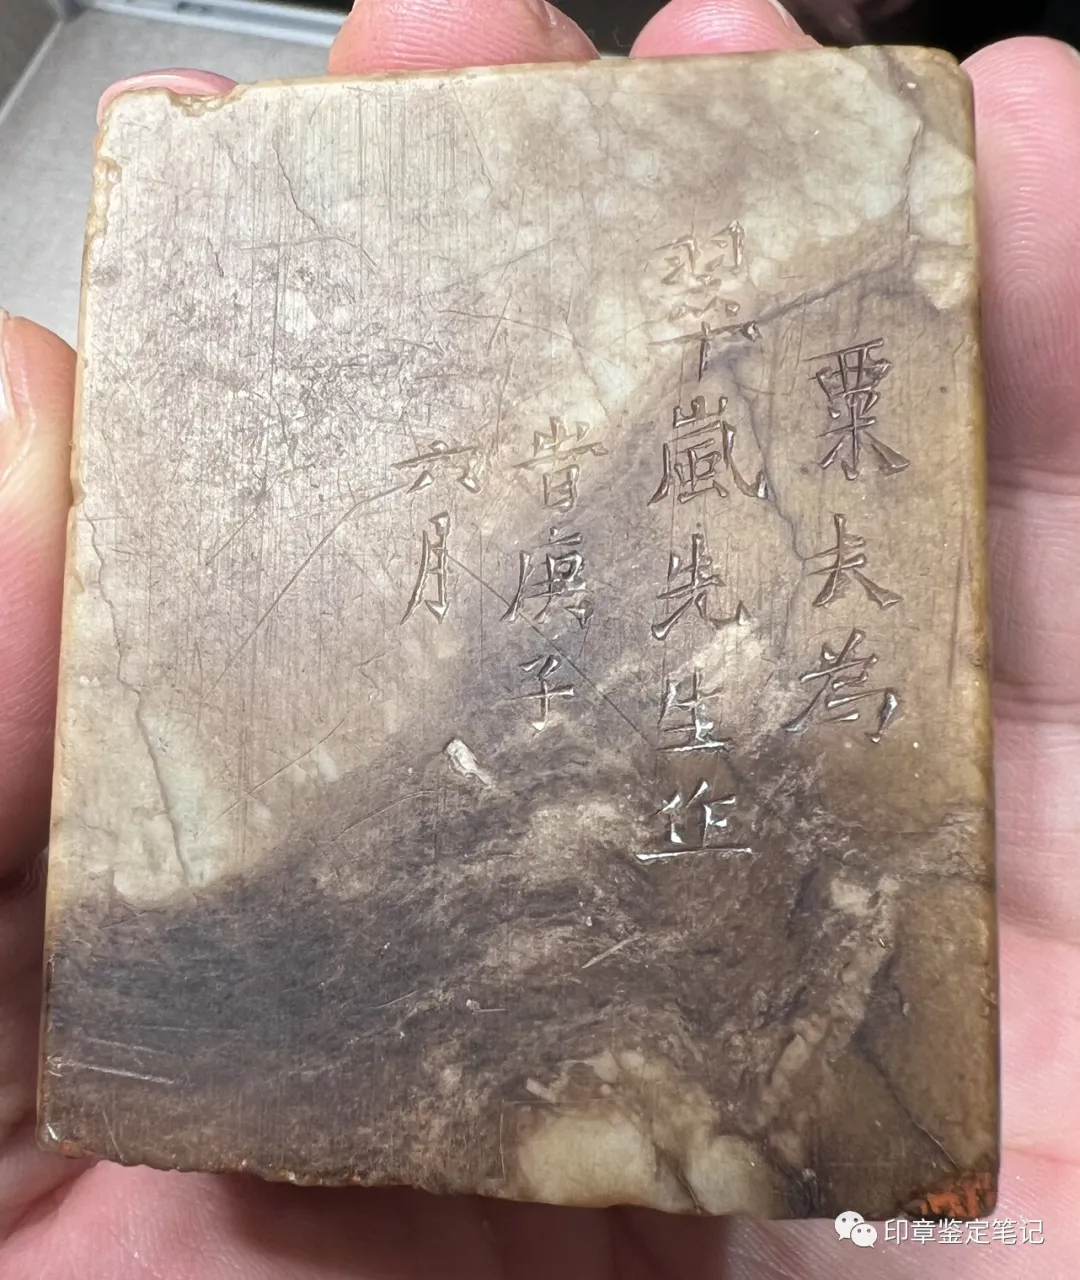 粟夫為
翠嵐先生作
旹庚子
六月
印章鉴定笔记